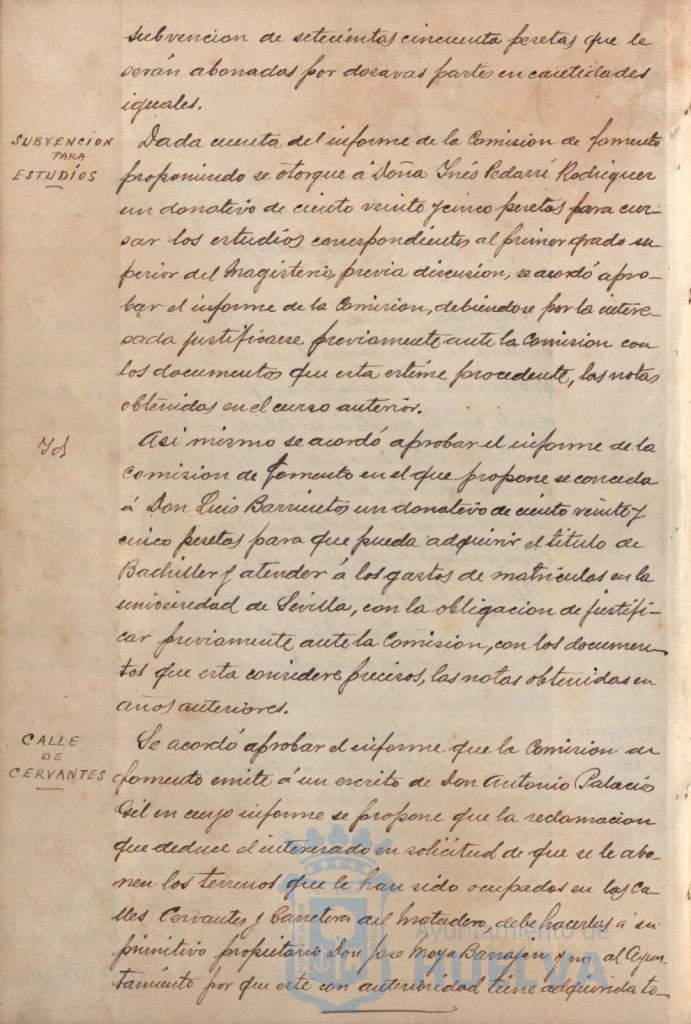 subvencion de setecientas cincuenta pesetas que le
serán abonadas por dozavas partes en cantidades
iguales.
SUBVENCION
PARA
ESTUDIOS
Dada cuenta del informe de la Comisión de fomento
proponiendo se otorgue á Doña Inés Pedarré Rodriguez
un donativo de ciento veinte y cinco pesetas para cur-
sar los estudios correspondientes al primer grado su-
perior del Magisterio, previa discusion, se acordó apro-
bar el informe de la Comision, debiendose por la intere-
sada justificarse previamente ante la Comision con
los documentos que esta estime procedente, las notas
obtenidas en el curso anterior.
Id
Asi mismo se acordó aprobar el informe de la
Comision de fomento en el que propone se conceda
á Don Luis Barrientos un donativo de ciento veinte y
cinco pesetas para que pueda adquirir el titulo de
Bachiller y atender á los gastos de matriculas en la
universidad de Sevilla, con la obligacion de justifi-
car previamente ante la Comision, con los documen-
tos que esta considere precisos, las notas obtenidas en
años anteriores.
CALLE
DE
CERVANTES
Se acordó aprobar el informe que la Comision de
fomento emite á un escrito de Don Antonio Palacios
Gil en cuyo informe se propone que la reclamacion
que deduce el interesado en solicitud de que se le abo-
nen los terrenos que le han sido ocupados en las Ca-
lles Cervantes y Carretera del Matadero, debe hacerlas á su
primitivo propietario Don Jose Moya Barrajón y no al Ayun-
tamiento por que este con anterioridad tiene adquirida to-
Ayuntamiento de
HUELVA